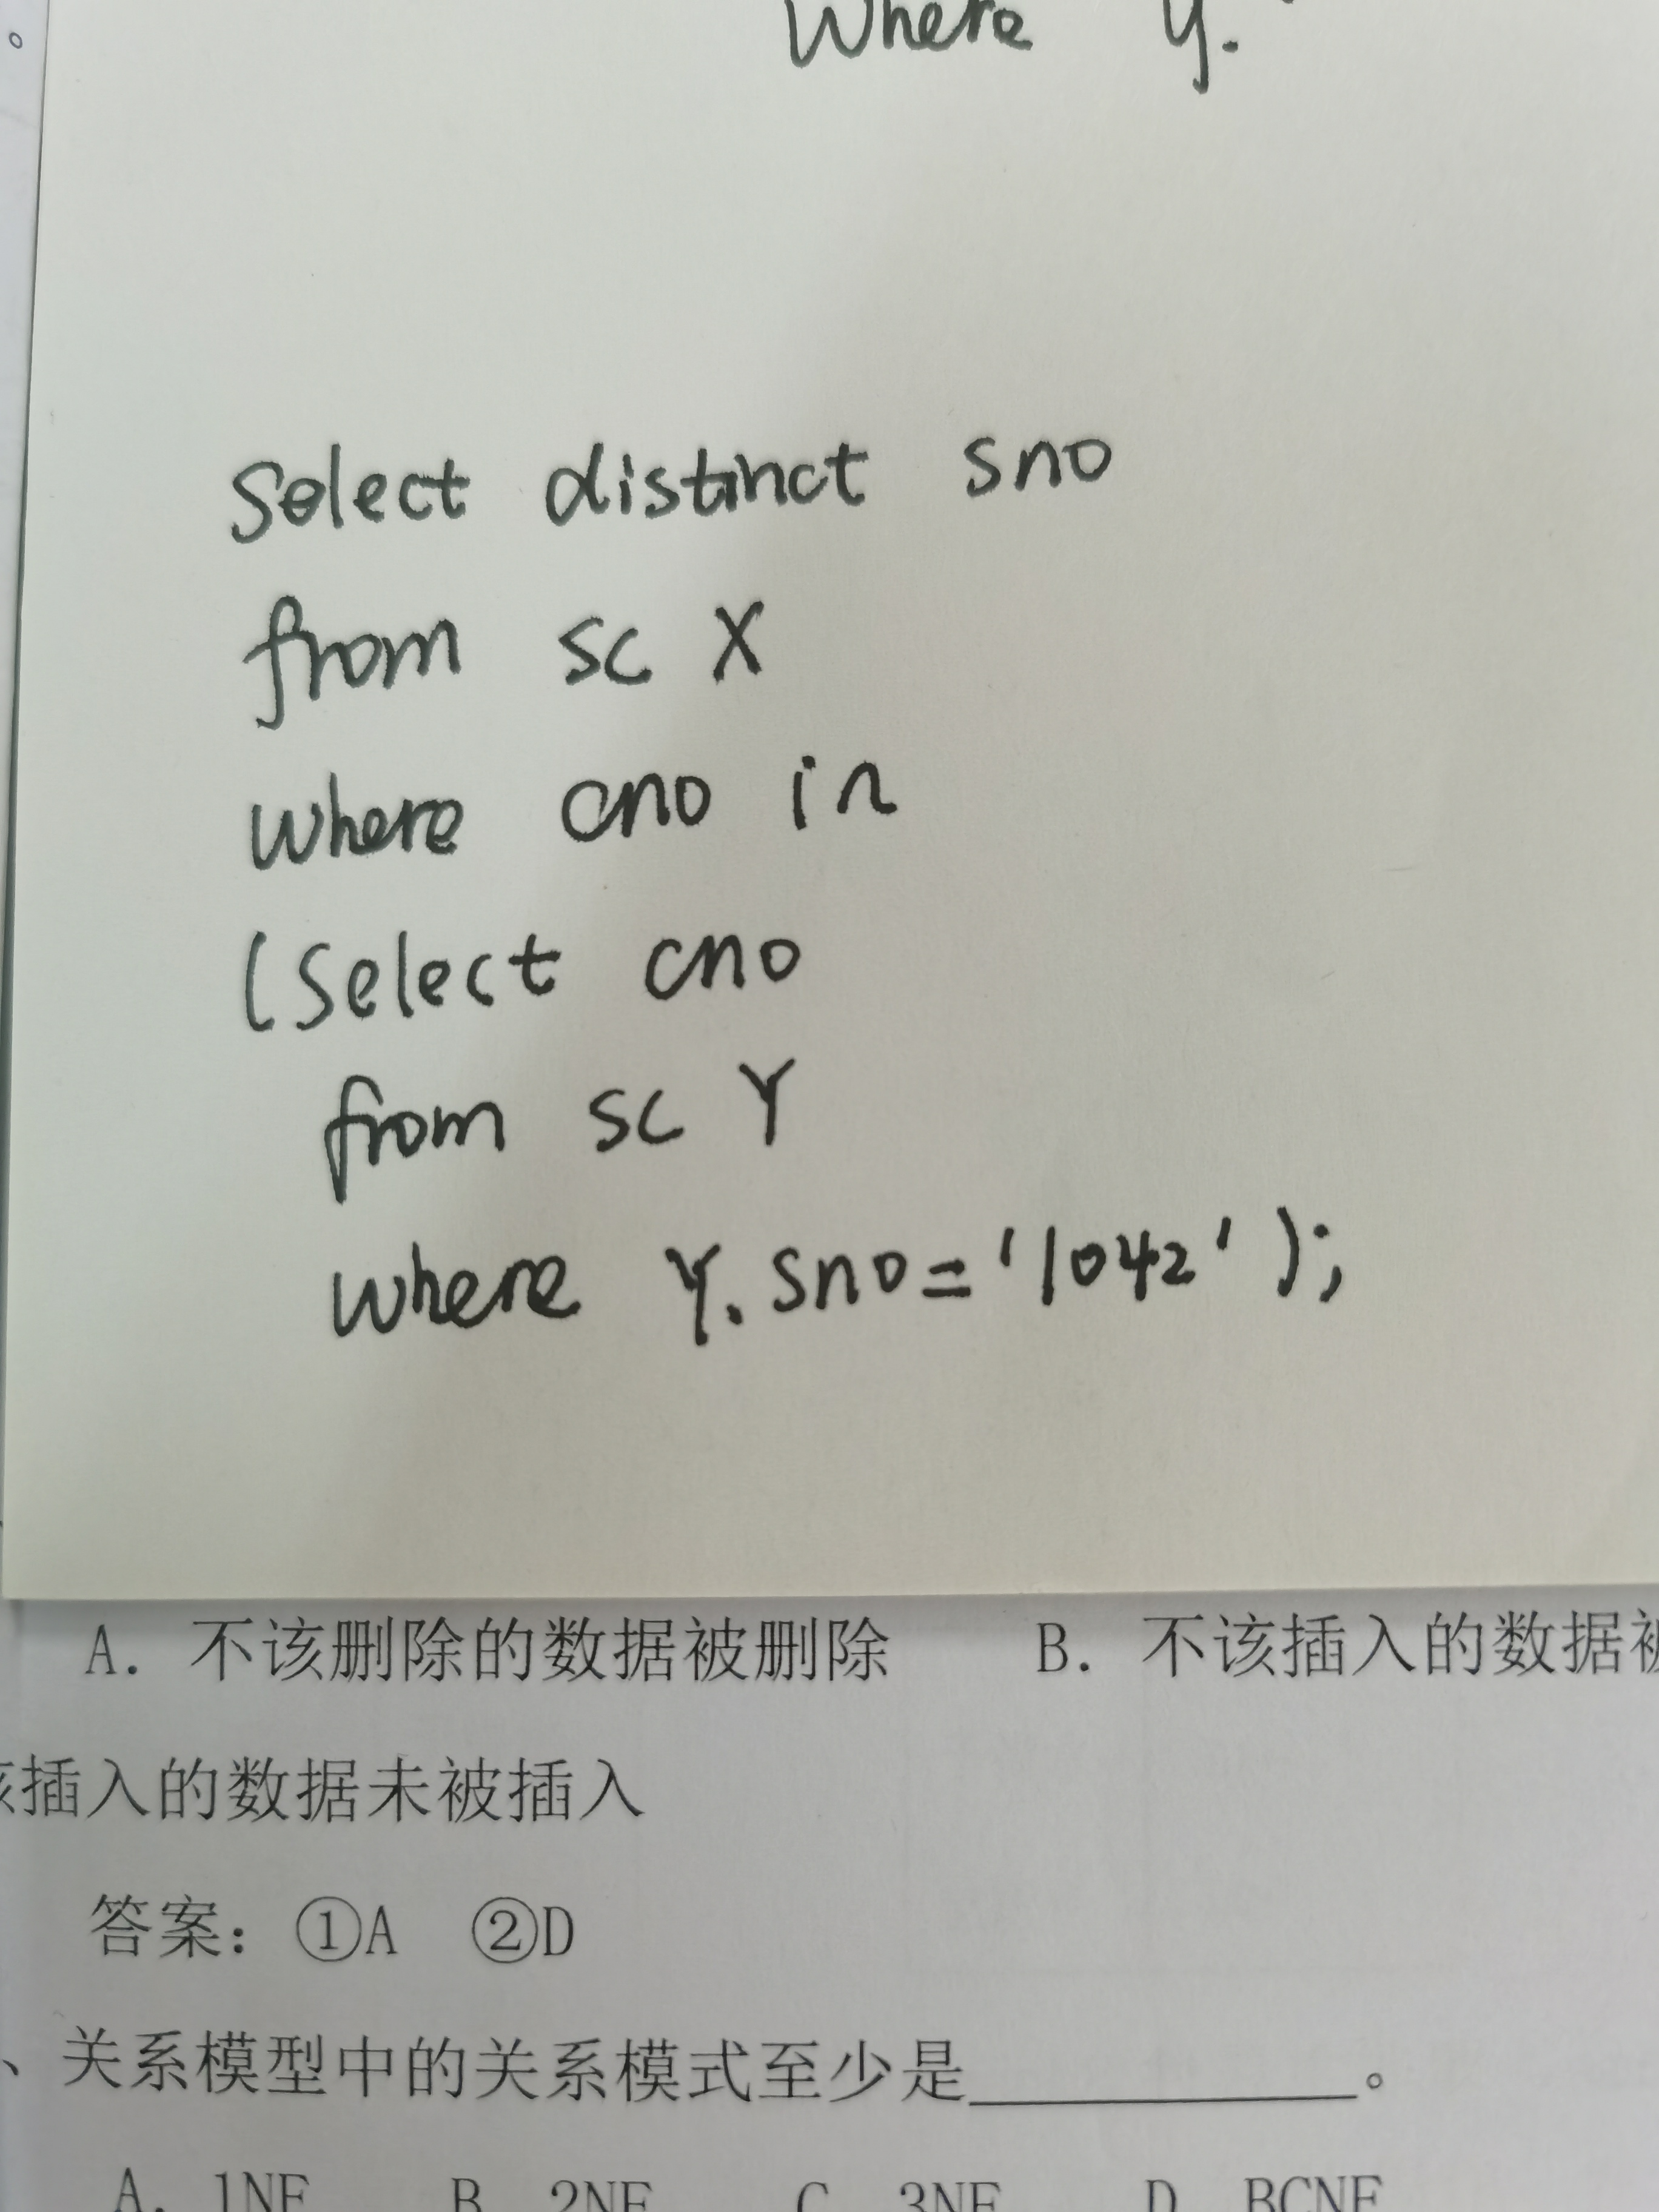 Where y.
Select distinct sno
from sc X
where cno in
(Select cno
from sc Y
where Y.sno='1042');
A. 不该删除的数据被删除 B. 不该插入的数据被
该插入的数据未被插入
答案：①A ②D
、关系模型中的关系模式至少是____________。
A. 1NF B. 2NF C. 3NF D. BCNF